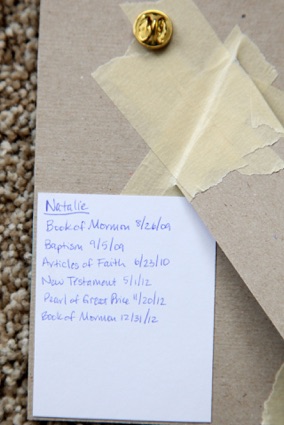 Natalie
Book of Mormon 8/26/09
Baptism 9/5/09
Articles of Faith 6/23/10
New Testament 5/1/12
Pearl of Great Price 11/20/12
Book of Mormon 12/31/12